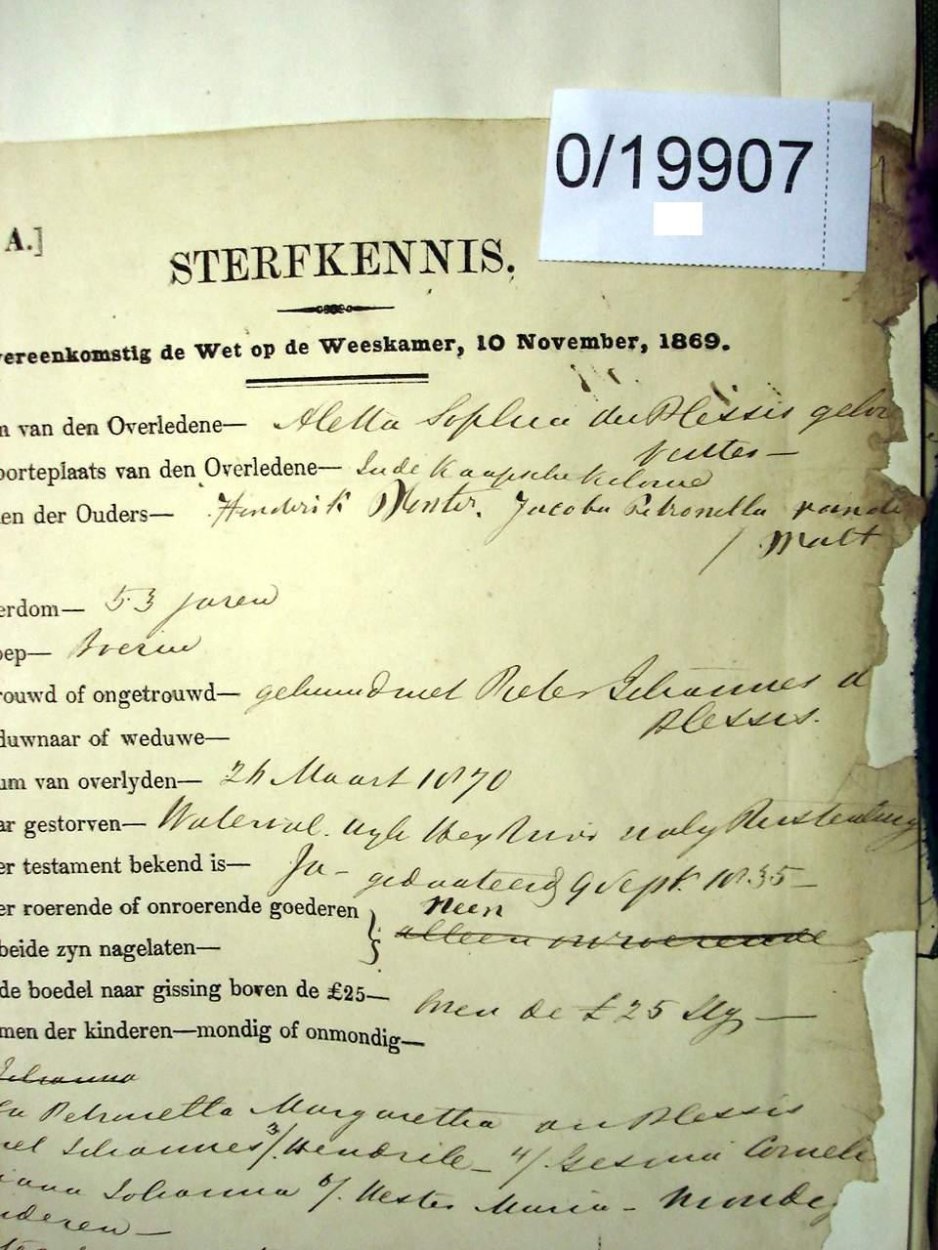 0/19907
A.]
STERFKENNIS.
vereenkomstig de Wet op de Weeskamer, 10 November, 1869.
n van den Overledene— Aletta Sophia du Plessis gebor
oorteplaats van den Overledene— In de Kaapsche Kolonie
en der Ouders— Hendrik Jacoba Petronella van de
Walt
erdom— 53 jaren
oep— Boerin
rouwd of ongetrouwd— gehuwd met Pieter Johannes d
Plessis.
duwnaar of weduwe—
um van overlyden— Maart 1870
ar gestorven— Waterval. wyk Hex Rivier Rustenburg
er testament bekend is— Ja – gedateerd 9 Sept.
er roerende of onroerende goederen Neen
beide zyn nagelaten— alleen onroerende
de boedel naar gissing boven de £25— boven de £25 Stg —
men der kinderen—mondig of onmondig—
Johanna
Petronella Margaretha du Plessis
Johannes 3/ Hendrik – 4/ Gesina Corneli
Johanna 6/ Hester Maria – mondig
nderen —